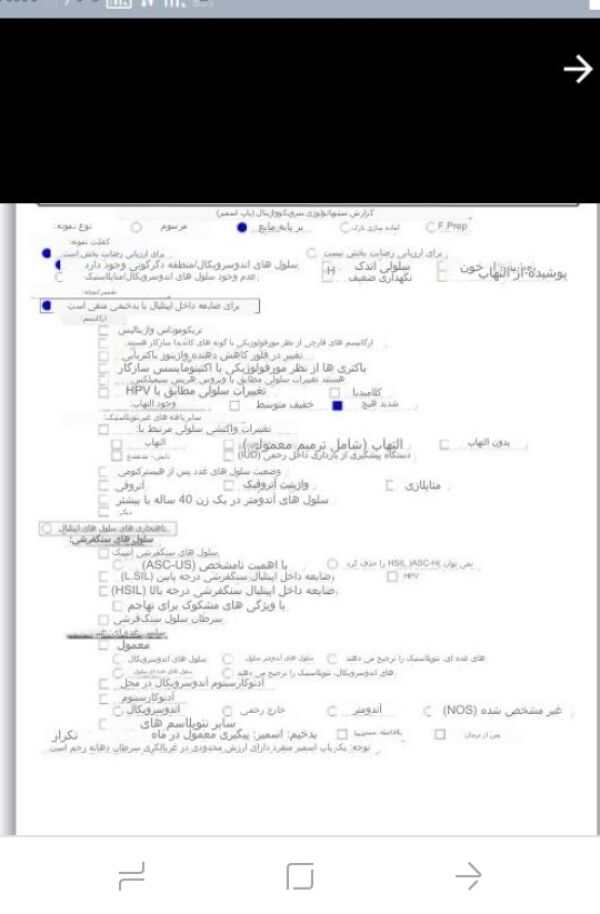 گزارش سیتوپاتولوژی سرویکوواژینال (پاپ اسمیر)
نوع نمونه: مرسوم بر پایه مایع آماده سازی نازک F.Prep
کفایت نمونه:
برای ارزیابی رضایت بخش است برای ارزیابی رضایت بخش نیست
سلول های اندوسرویکال/منطقه دگرگونی وجود دارد سلولی اندک خون پوشیده از التهاب
عدم وجود سلول های اندوسرویکال/متاپلاستیک نگهداری ضعیف
برای ضایعه داخل اپیتلیال یا بدخیمی منفی است
ارگانیسم:
تریکوموناس واژینالیس
ارگانیسم های قارچی از نظر مورفولوژیکی با گونه های کاندیدا سازگار هستند
تغییر در فلور کاهش دهنده واژینوز باکتریایی
باکتری ها از نظر مورفولوژیکی با اکتینومایسس سازگار
هستند تغییرات سلولی مطابق با ویروس هرپس سیمپلکس
تغییرات سلولی مطابق با HPV کلامیدیا
وجود التهاب: خفیف متوسط شدید هیچ
سایر یافته های غیر نئوپلاستیک:
تغییرات واکنشی سلولی مرتبط با:
التهاب التهاب (شامل ترمیم معمولی) بدون التهاب
دستگاه پیشگیری از بارداری داخل رحمی (IUD)
وضعیت سلول های غدد پس از هیسترکتومی
آتروفی واژینیت آتروفیک متاپلازی
سلول های آندومتر در یک زن 40 ساله یا بیشتر
دیگر:
ناهنجاری های سلول های اپیتلیال
سلول های سنگفرشی:
سلول های سنگفرشی آتیپیک
با اهمیت نامشخص (ASC-US) نمی توان HSIL (ASC-H) را حذف کرد
ضایعه داخل اپیتلیال سنگفرشی درجه پایین (L.SIL) HPV
ضایعه داخل اپیتلیال سنگفرشی درجه بالا (HSIL)
با ویژگی های مشکوک برای تهاجم
سرطان سلول سنگفرشی
معمول
سلول های اندوسرویکال سلول های آندومتر سلول های غده ای، نئوپلاستیک را ترجیح می دهند
سلول های غده ای سلول های اندوسرویکال، نئوپلاستیک را ترجیح می دهند
آدنوکارسینوم آندوسرویکال در محل
آدنوکارسینوم
آندوسرویکال خارج رحمی آندومتر غیر مشخص شده (NOS)
سایر نئوپلاسم های
بدخیم: اسمیر: پیگیری معمول در ماه پس از درمان تکرار
توجه: یک پاپ اسمیر منفرد دارای ارزش محدودی در غربالگری سرطان دهانه رحم است